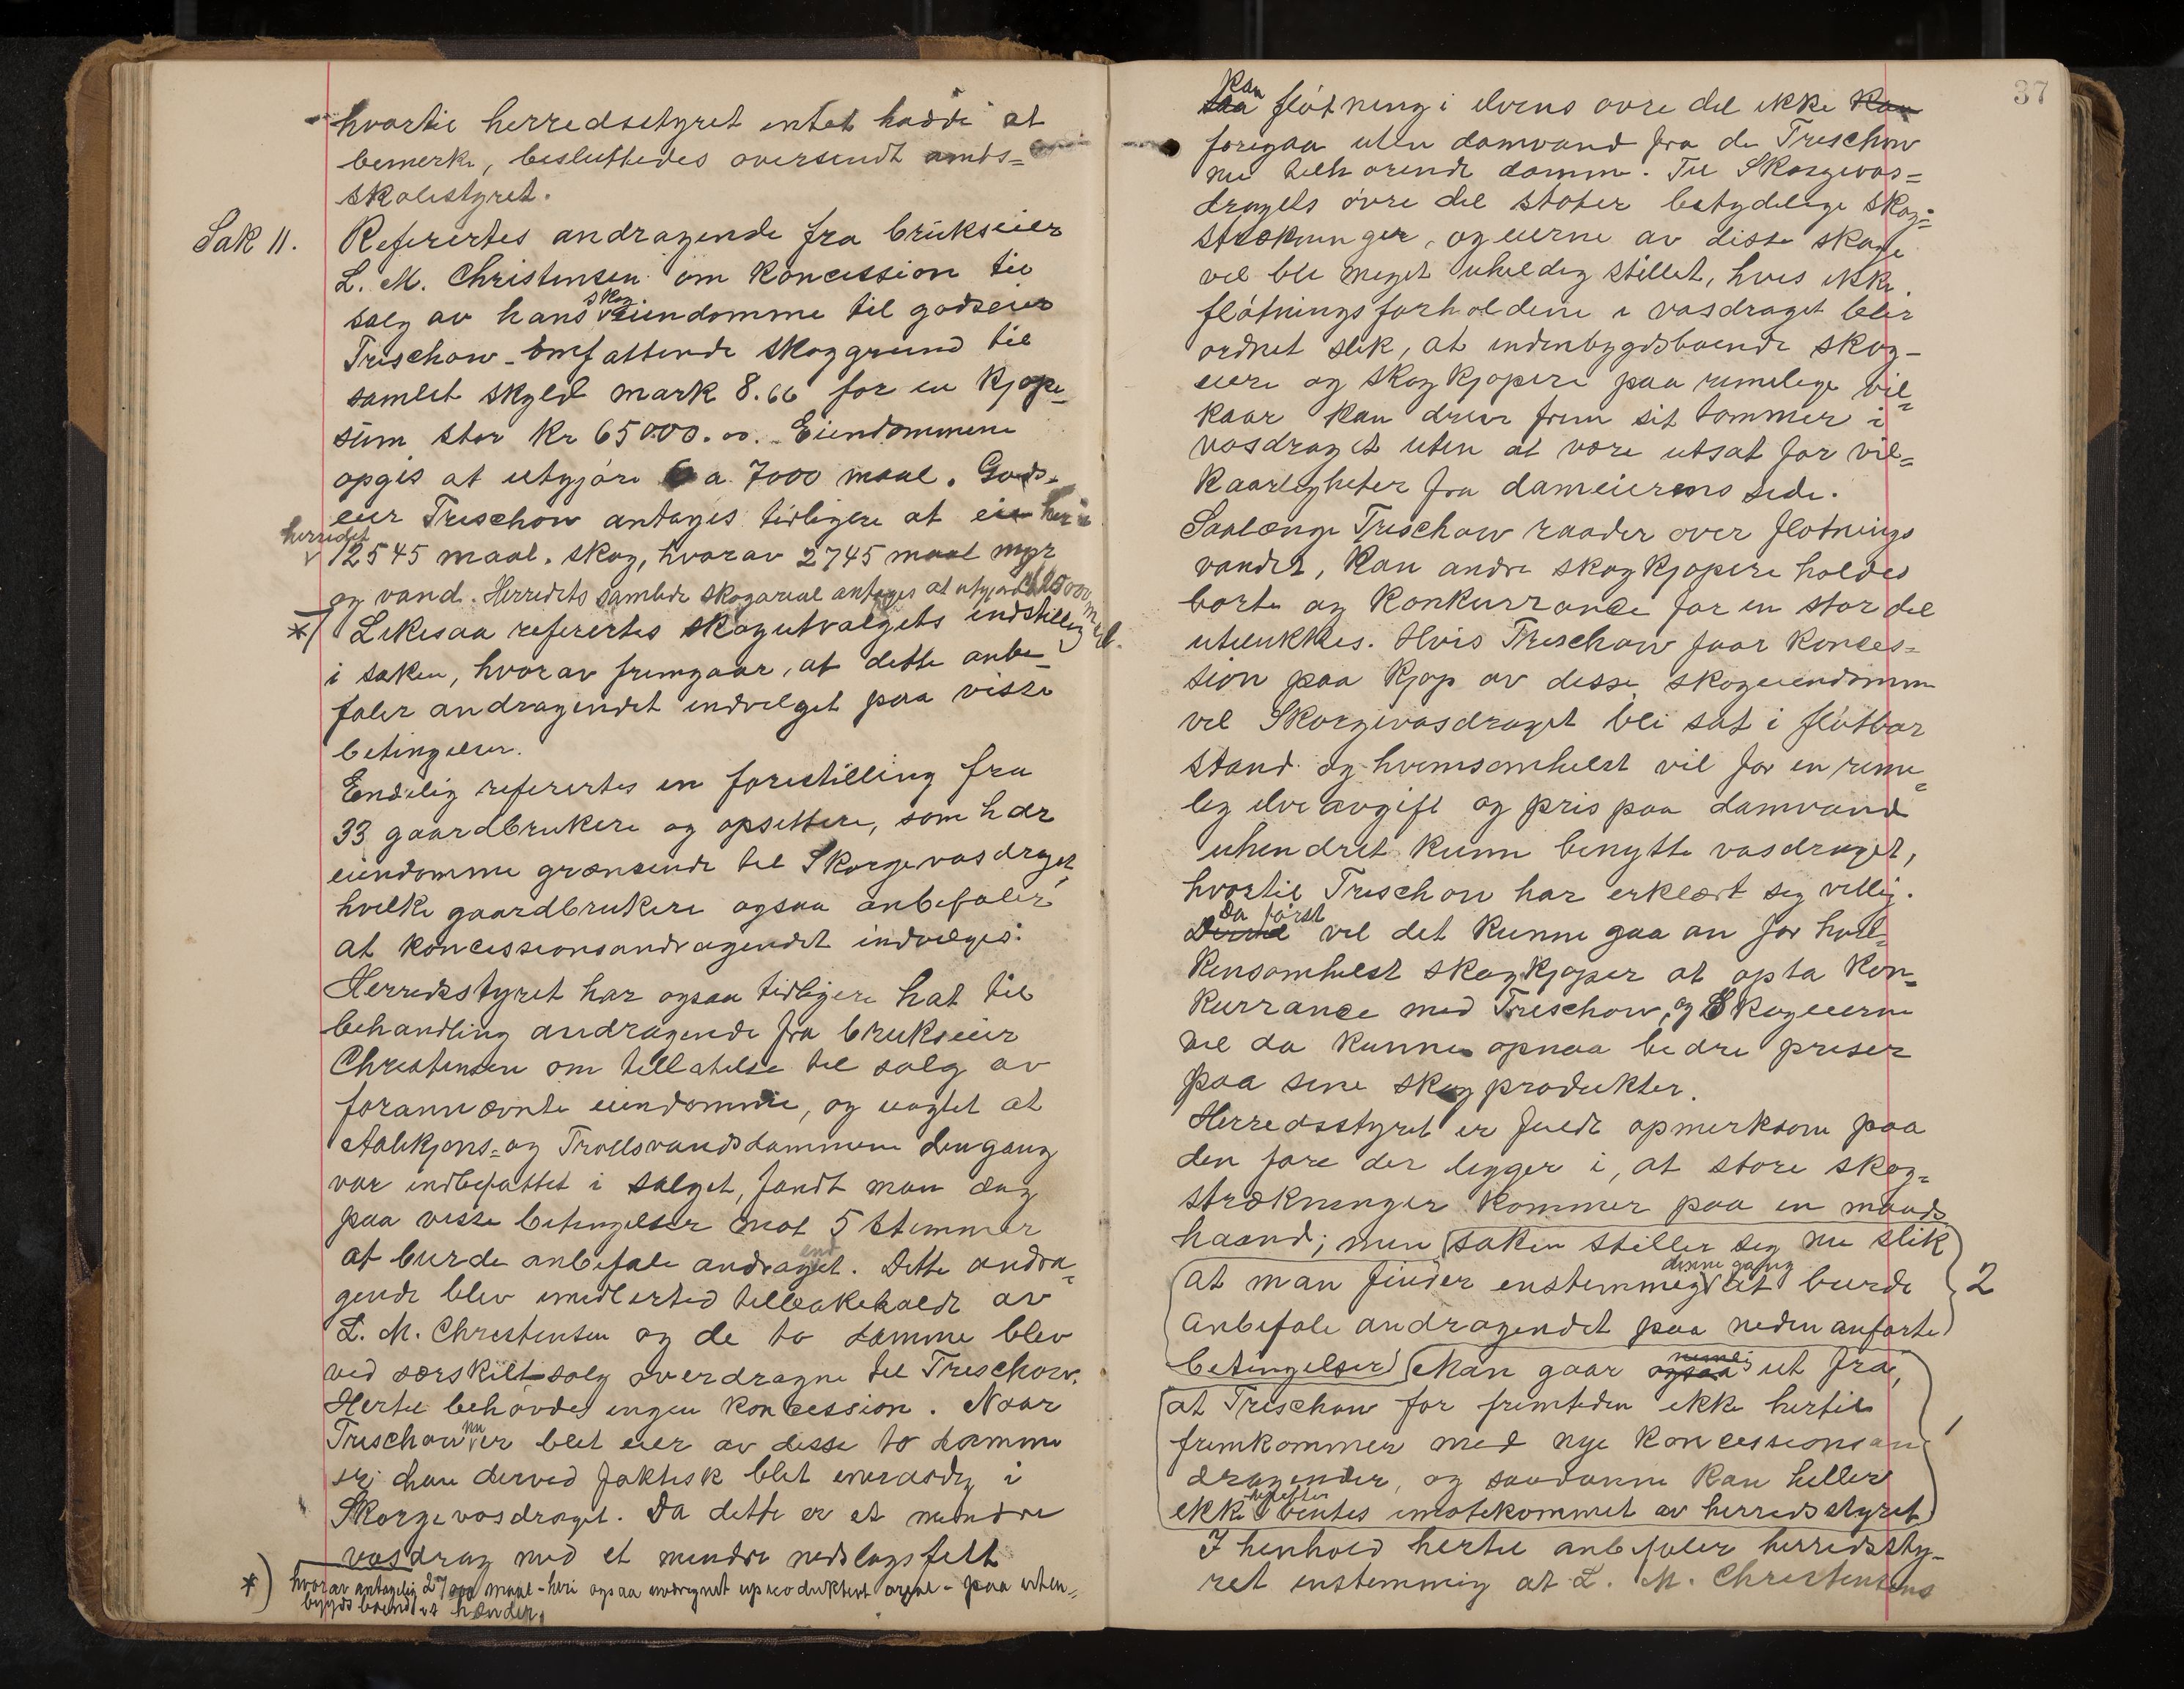 hvortil herredsstyret intet hadde at
bemerke, besluttedes oversendt amts=
skolestyret.
Sak 11. Refertes andragende fra brukseier
L. M. Christensen om koncession til
salg av hans skogeiendomme til godseier
Treschow omfattende skoggrund til
samlet skyld mark 8.66 for en kjøpe-
sum stor kr 65000.00. Eiendommene
opgis at utgjøre 6 a 7000 maal. Gods-
eier Treschow antages tidligere at eie her i
herredet 12545 maal. skog, hvorav 2745 maal myr
og vand. Herredets samlede skogareal antages at utgjøre maal.
*) Likesaa refertes skogutvalgets indstilling
i saken, hvorav fremgaar, at dette anbe-
faler andragendet indvilget paa visse
betingelser.
Endelig refertes en forestilling fra
33 gaardbrukere og opsittere, som har
eiendomme grænsende til Skorgevasdraget,
hvilke gaardbrukere ogsaa anbefaler
at koncessionsandragendet indvilges.
Herredsstyret har ogsaa tidligere hat til
behandling andragende fra brukseier
Christensen om tillatelse til salg av
forannævnte eiendomme, og uagtet at
Aalekjons= og Trollsvandsdammene dengang
var indbefattet i salget, fandt man dog
paa visse betingelser mot 5 stemmer
at burde anbefale andraget. Dette andra=
gende blev imidlertid tilbakekaldt av
L. M. Christensen og de to damme blev
ved særskilt salg overdragne til Treschow.
Hertil behøvdes ingen koncession. Naar
Treschow nu er blet eier av disse to damme
er han derved faktisk blet eneraadig i
Skorgevasdraget. Da dette er et mindre
vasdrag med et mindre nedslagsfelt
*) hvorav antagelig 27000 maal - heri ogsaa medregnet uproduktivt areal - paa uten=
bygdsboendes hænder.
37
saa kan fløtning i elvens øvre del ikke kan
foregaa uten damvand fra de Treschow
nu tilhørende damme. Til Skorgevas=
dragets øvre del støter betydelige skog=
strækninger, og eierne av disse skoge
vil bli meget uheldig stillet, hvis ikke
fløtningsforholdene i vasdraget blir
ordnet slik, at indenbygdsboende skog-
eiere og skogkjøpere paa rimelige vil=
kaar kan drive frem sit tømmer i
vasdraget uten at være utsat for vil=
kaarligheter fra dameierens side.
Saalænge Treschow raader over fløtnings
vandet, kan andre skogkjøpere holdes
borte og konkurrance for en stor del
utelukkes. Hvis Treschow faar konces=
sion paa kjøp av disse skogeiendomme
vil Skorgevasdraget bli sat i fløtbar
stand og hvemsomhelst vil for en rime=
lig elveavgift og pris paa damvand
uhindret kunne benytte vasdraget,
hvortil Treschow har erklært sig villig.
Derved Da først vil det kunne gaa an for hvil=
kensomhelst skogkjøper at opta kon=
kurrance med Treschow, og skogeierne
vil da kunne opnaa bedre priser
paa sine skogprodukter.
Herredsstyret er fuldt opmerksom paa
den fare der ligger i, at store skog=
strækninger kommer paa en mands
haand; men saken stiller sig nu slik
at man finder enstemmig denne gang at burde 2
anbefale andragendet paa nedenanførte
betingelser. Man gaar ogsaa nemlig ut fra,
at Treschow for fremtiden ikke hertil
fremkommer med nye koncessionsan 1
dragender, og saadanne kan heller
ikke herefter ventes imøtekommet av herredsstyret.
I henhold hertil anbefaler herredssty-
ret enstemmig at L. M. Christensens